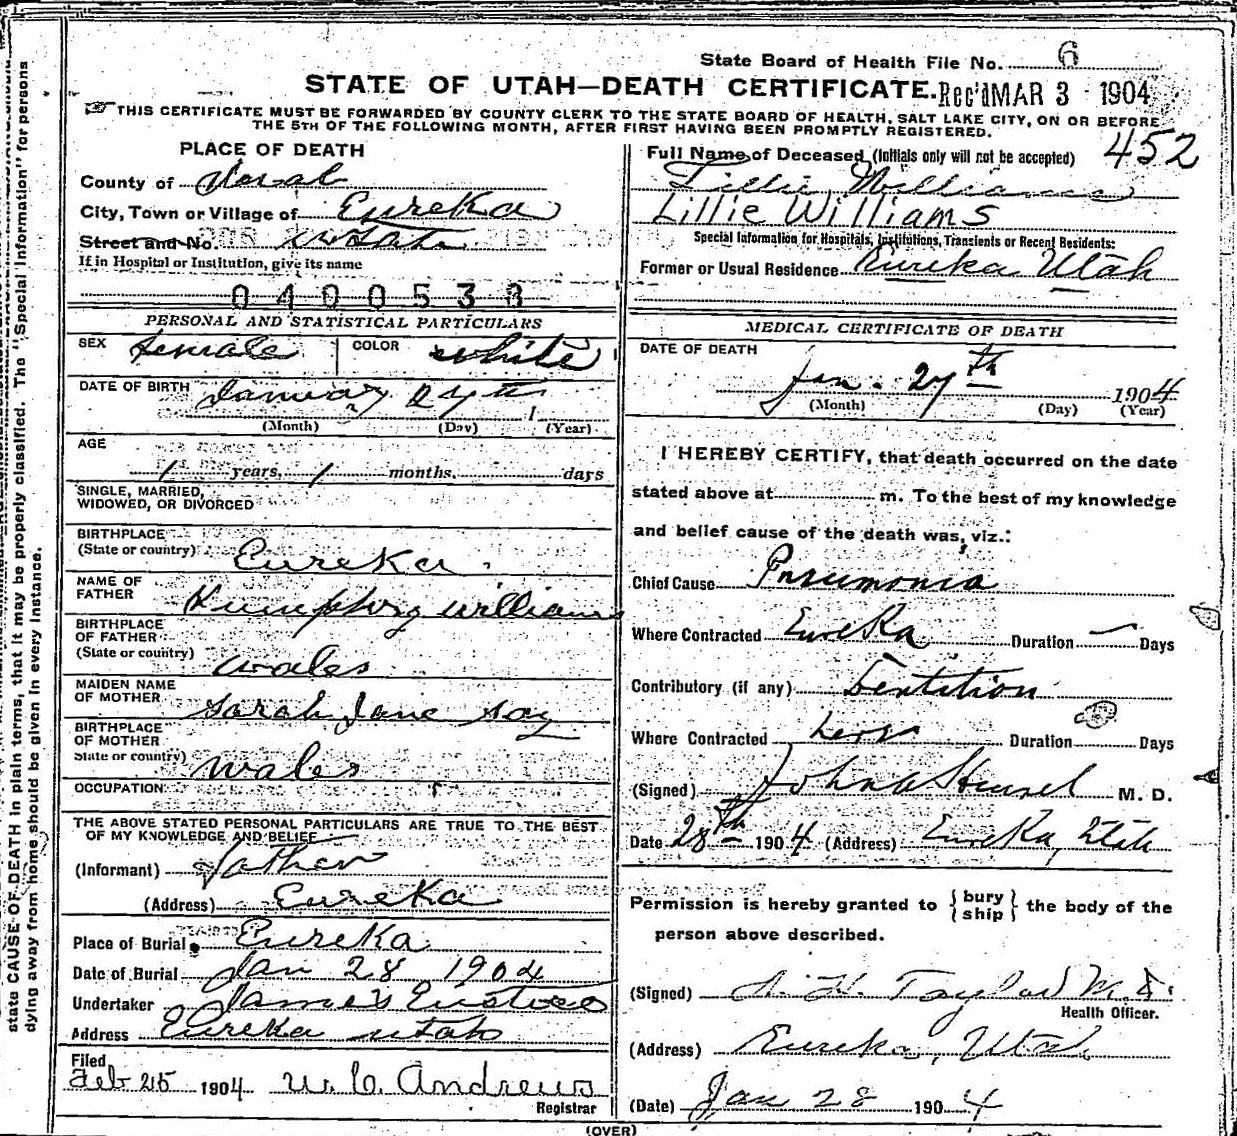 State Board of Health File No. 6
STATE OF UTAH—DEATH CERTIFICATE.
Rec'd MAR 3 - 1904
THIS CERTIFICATE MUST BE FORWARDED BY COUNTY CLERK TO THE STATE BOARD OF HEALTH, SALT LAKE CITY, ON OR BEFORE
THE 5TH OF THE FOLLOWING MONTH, AFTER FIRST HAVING BEEN PROMPTLY REGISTERED.
452
PLACE OF DEATH
County of
City, Town or Village of Eureka
Street and No.
If in Hospital or Institution, give its name
0400538
PERSONAL AND STATISTICAL PARTICULARS
SEX female COLOR white
DATE OF BIRTH January 24th 1
(Month) (Day) (Year)
AGE
1 years, 1 months. days
SINGLE, MARRIED,
WIDOWED, OR DIVORCED
BIRTHPLACE
(State or country) Eureka
NAME OF
FATHER Humphry Williams
BIRTHPLACE
OF FATHER
(State or country) Wales
MAIDEN NAME
OF MOTHER Sarah Jane
BIRTHPLACE
OF MOTHER
State or country) Wales
OCCUPATION
THE ABOVE STATED PERSONAL PARTICULARS ARE TRUE TO THE BEST
OF MY KNOWLEDGE AND BELIEF
(Informant) Father
(Address) Eureka
Place of Burial Eureka
Date of Burial Jan 28 1904
Undertaker James
Address Eureka Utah
Filed
Feb 25 1904 W. C. Andrews
Registrar
Full Name of Deceased (Initials only will not be accepted)
Lillie Williams
Lillie Williams
Special Information for Hospitals, Institutions, Transients or Recent Residents:
Former or Usual Residence Eureka Utah
MEDICAL CERTIFICATE OF DEATH
DATE OF DEATH
Jan. 27th 1904
(Month) (Day) (Year)
I HEREBY CERTIFY, that death occurred on the date
stated above at m. To the best of my knowledge
and belief cause of the death was, viz.:
Chief Cause Pneumonia
Where Contracted Eureka Duration — Days
Contributory (if any) Dentition
Where Contracted here Duration Days
(Signed) John A Hensel M. D.
Date 28th 1904 (Address) Eureka, Utah
Permission is hereby granted to { bury
ship } the body of the
person above described.
(Signed) Taylor M.D.
Health Officer.
(Address) Eureka, Utah
(Date) Jan 28 1904
(OVER)
state CAUSE OF DEATH in plain terms, that it may be properly classified. The "Special Information" for persons
dying away from home should be given in every instance.